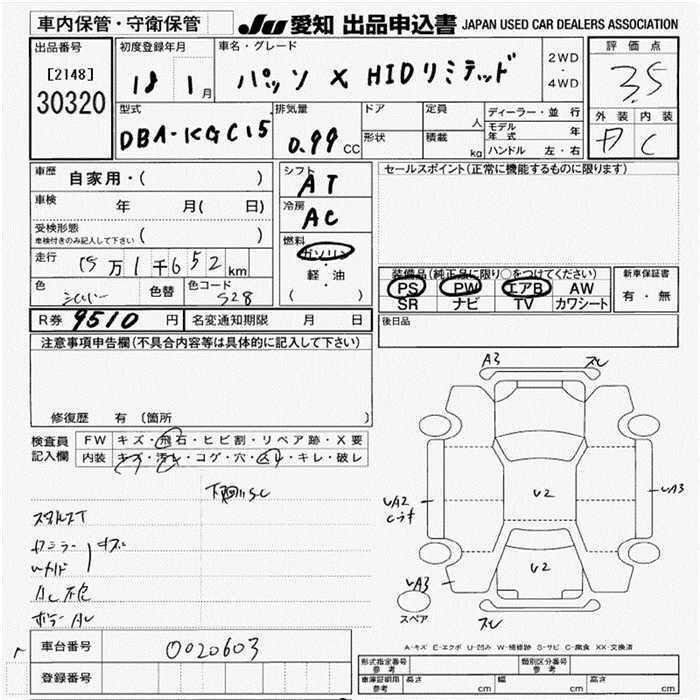 車内保管・守衛保管
JU 愛知 出品申込書 JAPAN USED CAR DEALERS ASSOCIATION
出品番号
[2148]
30320
初度登録年月
18 1月
車名・グレード
パッソ X HIDリミテッド
2WD
・
4WD
評価点
3.5
外装 内装
C
型式
DBA-KGC15
排気量
0.99 CC
ドア
形状
定員
人
積載
kg
ディーラー・並行
モデル年式 年
ハンドル 左・右
車歴 自家用・( )
車検 年 月( 日)
受検形態
車検付きのみ記入して下さい ( )
走行 万1千652km
色 シルバー 色替 色コード S28
シフト
AT
冷房
AC
燃料
ガソリン
・
軽油
( )
セールスポイント(正常に機能するものに限ります)
装備品(純正品に限り○をつけてください)
PS PW エアB AW
SR ナビ TV カワシート
新車保証書
有・無
後日品
R券 9510円 名変通知期限 月 日
注意事項申告欄(不具合内容等は具体的に記入して下さい)
修復歴 有 (箇所 )
検査員記入欄
FW キズ・飛石・ヒビ割・リペア跡・X要
内装 キズ・汚レ・コゲ・穴・スレ・キレ・破レ
下廻りSC
キズ
A3 スレ
U2
UA2
UA3
U2
UA3
スレ
スペア
A-キズ E-エクボ U-凹み W-補修跡 S-サビ C-腐食 XX-交換済
車台番号 0020603
登録番号
形式指定番号 参考 類別区分番号 参考
車庫証明用 参考 長さ cm 幅 cm 高さ cm